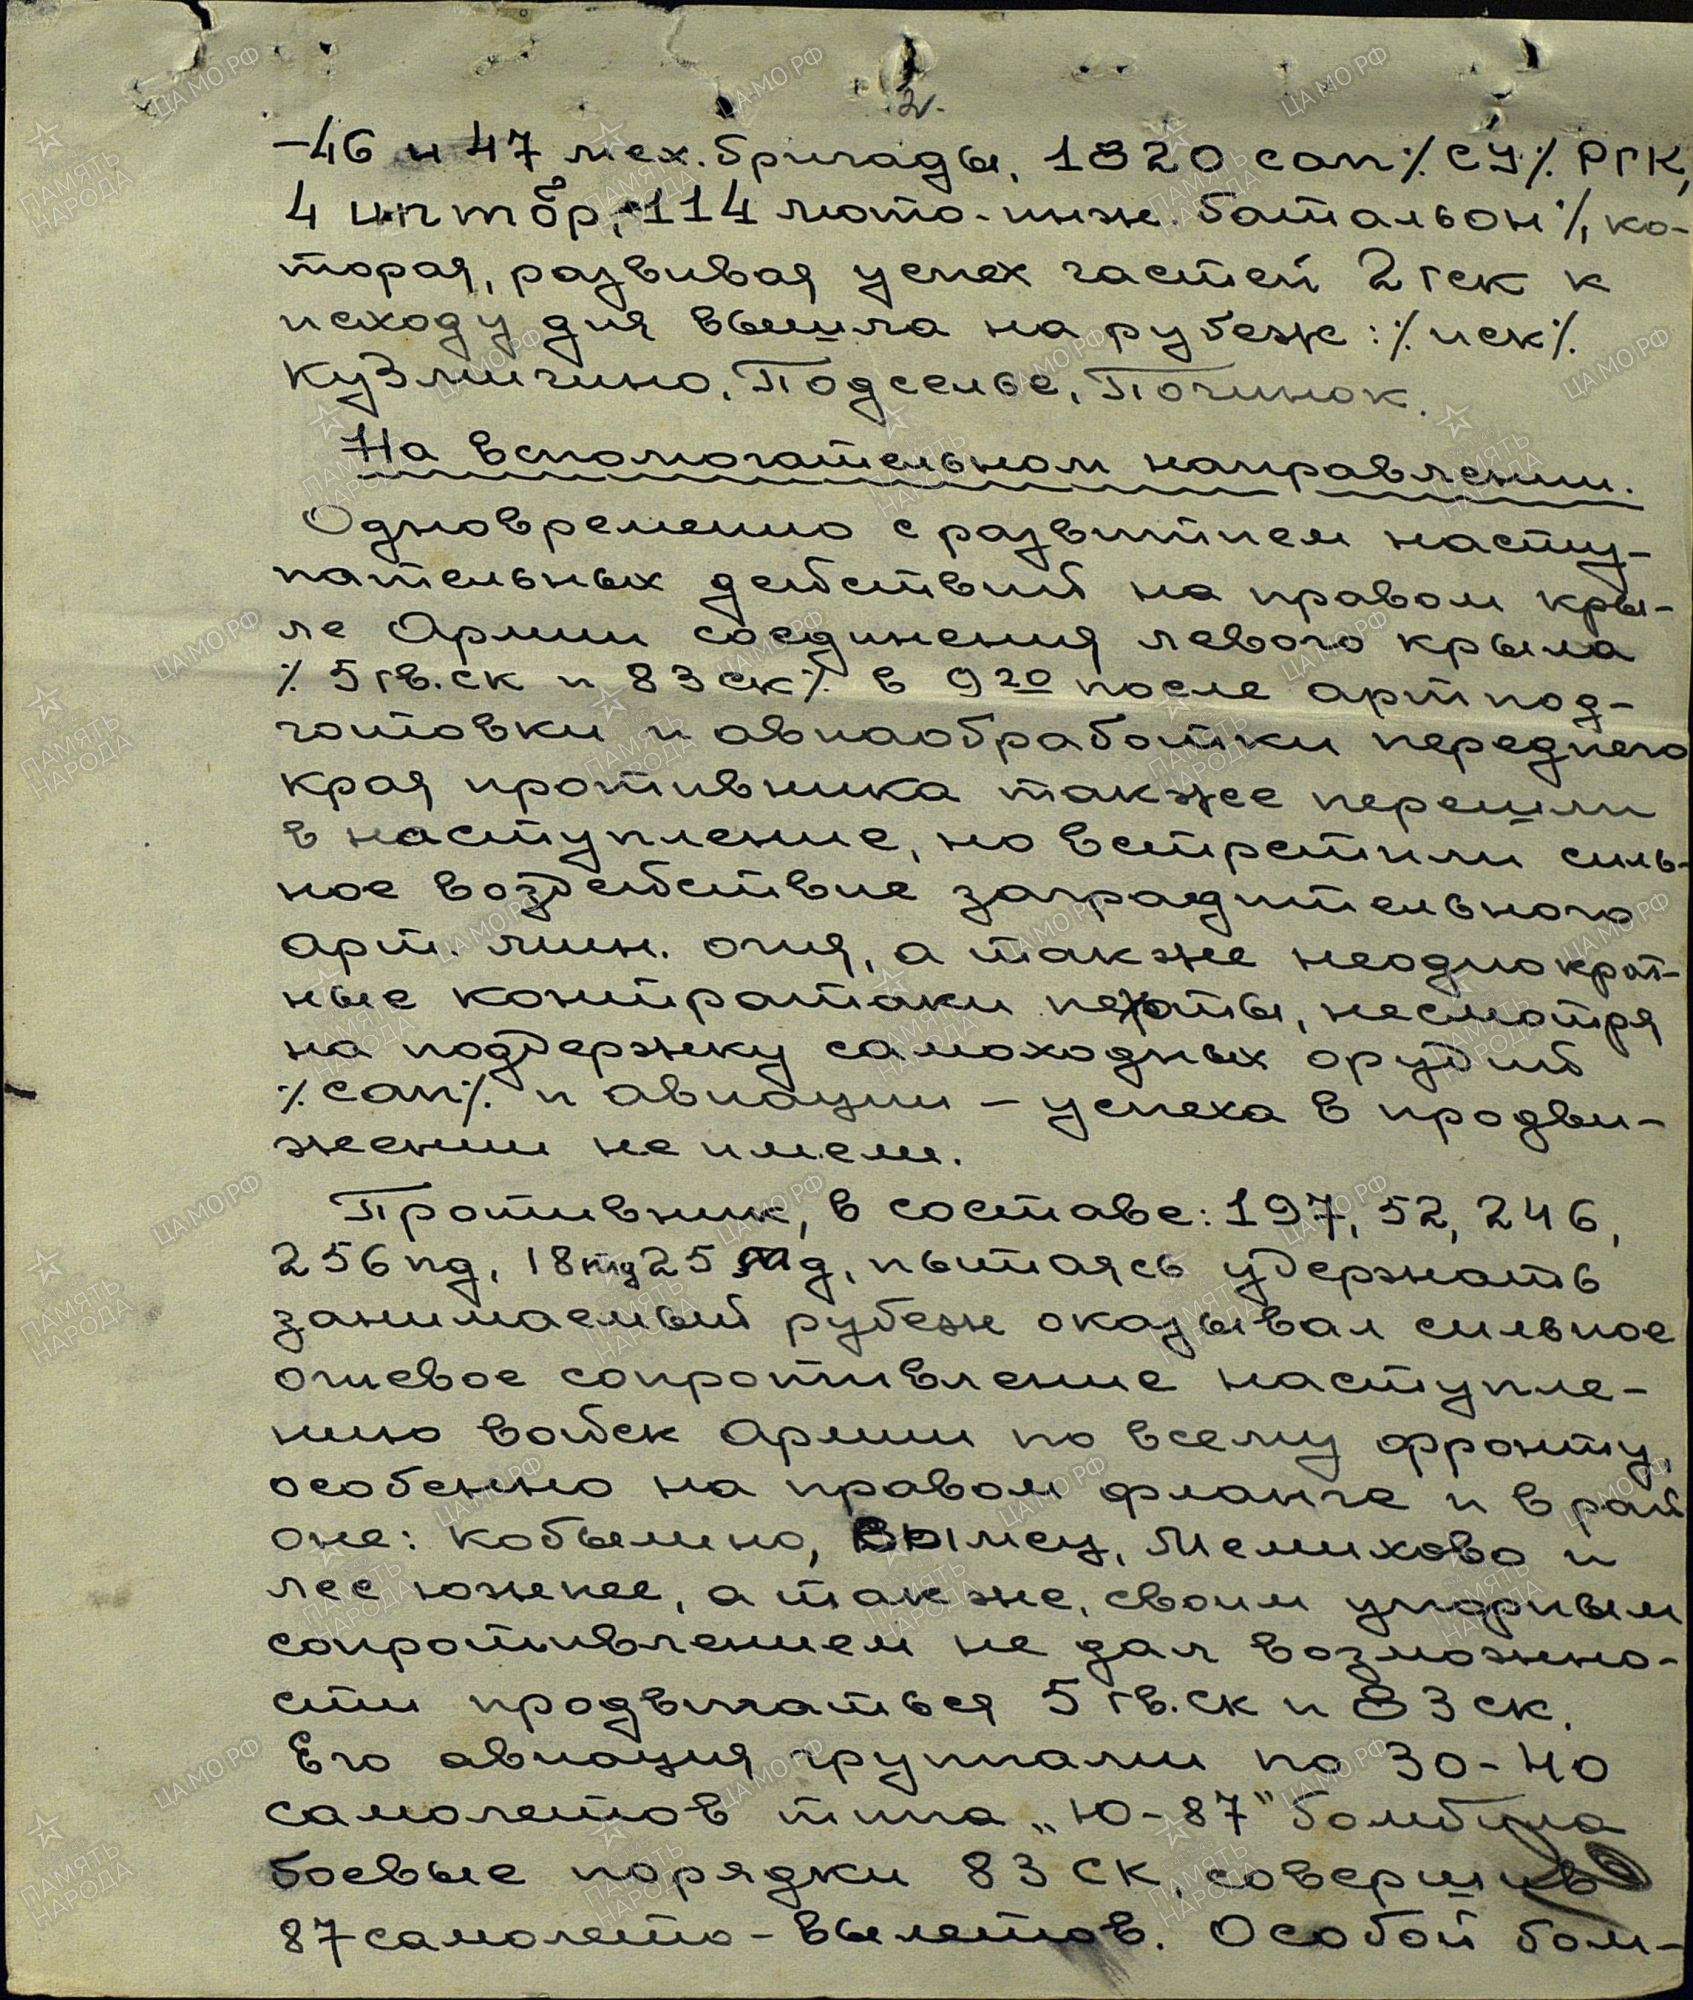 2.
-46 и 47 мех. бригады, 1820 сап % СУ % РГК,
4 иптабр, 114 мото-инж. батальон %, ко-
торая, развивая успех частей 2 гск к
исходу дня вышла на рубеж: % иск %
Кузмичино, Подселье, Починок.
На вспомогательном направлении.
Одновременно с развитием насту-
пательных действий на правом кры-
ле Армии соединения левого крыла
% 5 гв. ск и 83 ск % в 9 20 после артпод-
готовки и авиаобработки переднего
края противника также перешли
в наступление, но встретили силь-
ное воздействие заградительного
арт. мин. огня, а также неоднократ-
ные контратаки пехоты, несмотря
на поддержку самоходных орудий
% сап % и авиации - успеха в продви-
жении не имели.
Противник, в составе: 197, 52, 246,
256 пд, 18 мд 25 мд, пытаясь удержать
занимаемый рубеж оказывал сильное
огневое сопротивление наступле-
нию войск Армии по всему фронту,
особенно на правом фланге и в рай
оне: Кобылино, Вымсу, Мемихово и
лес южнее, а также, своим упорным
сопротивлением не дал возможно-
сти продвигаться 5 гв. ск и 83 ск.
Его авиация группами по 30-40
самолетов типа „Ю-87" бомбила
боевые порядки 83 СК, совершив
87 самолето-вылетов. Особой бом-
ЦАМО РФ
ПАМЯТЬ НАРОДА